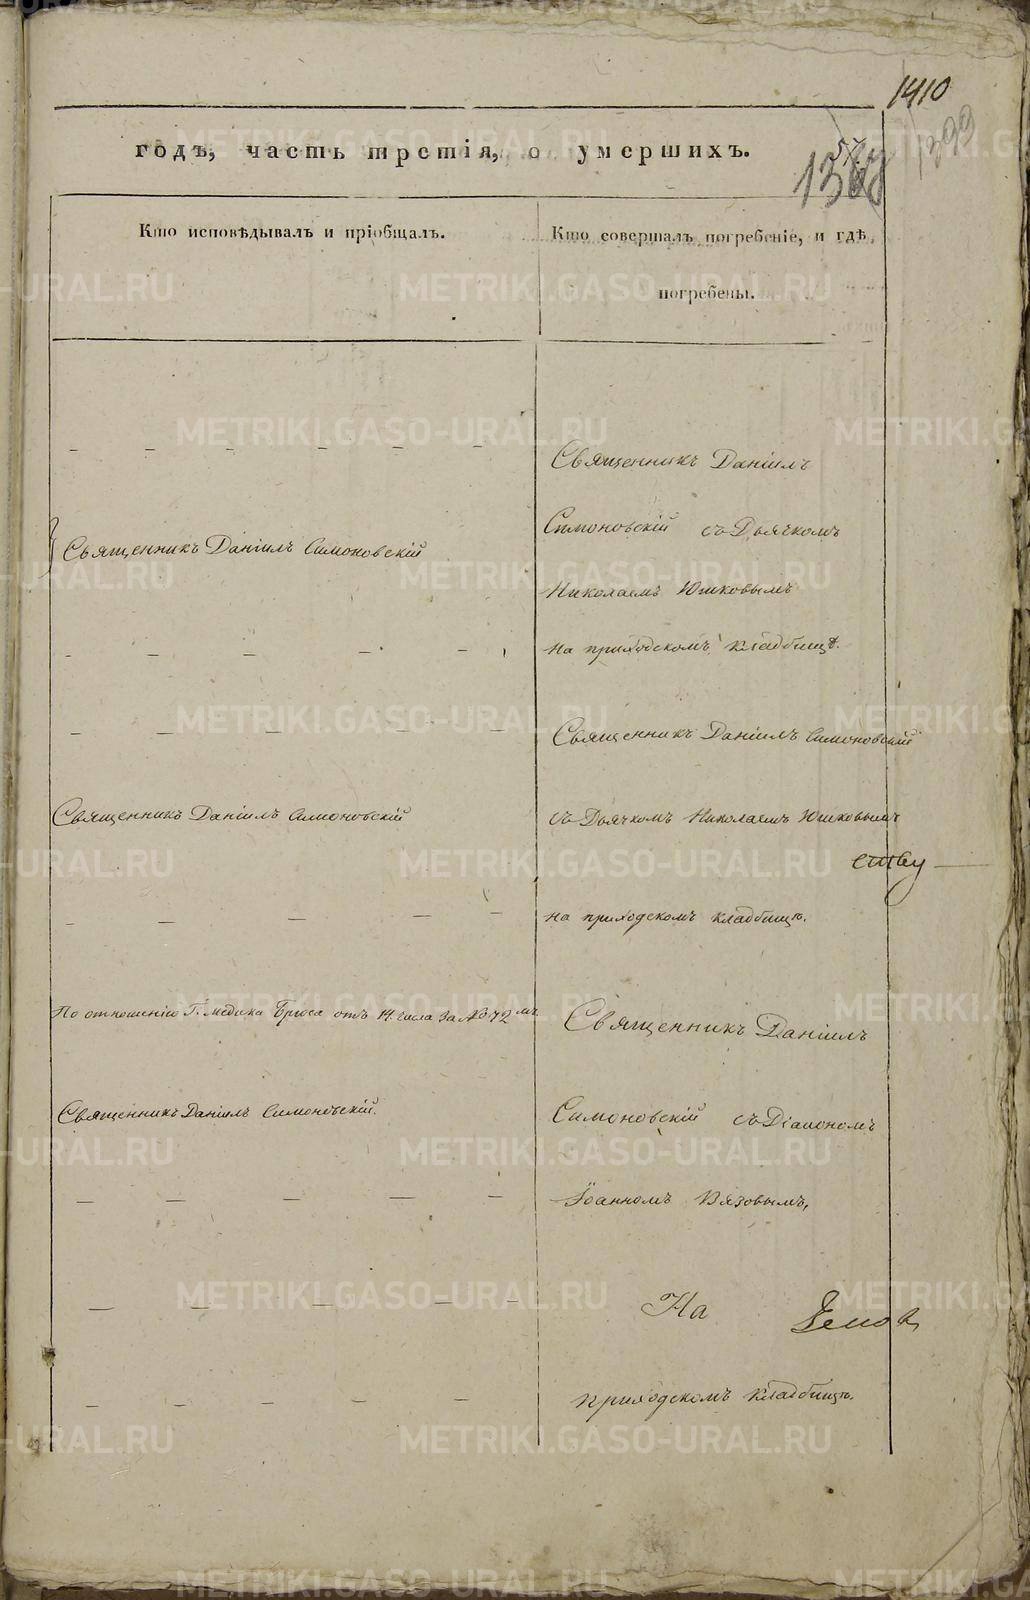 1410
1399
годъ, часть третія, о умершихъ.
57
Кто исповѣдывалъ и пріобщалъ.
Кто совершалъ погребеніе, и гдѣ
погребены.
Священникъ Даніилъ
Симоновскій съ Дьячкомъ
Священникъ Даніилъ Симоновскій
Николаемъ Юшковымъ
на приходскомъ кладбищѣ.
Священникъ Даніилъ Симоновскій
Священникъ Даніилъ Симоновскій
съ Дьячкомъ Николаемъ Юшковымъ
ству
на приходскомъ кладбищѣ.
По отношенію Г. медика Брюса отъ 14. числа за №
Священникъ Даніилъ
Священникъ Даніилъ Симоновскій.
Симоновскій съ Діакономъ
Іоанномъ Вязовымъ,
На
приходскомъ кладбищѣ.
METRIKI.GASO-URAL.RU